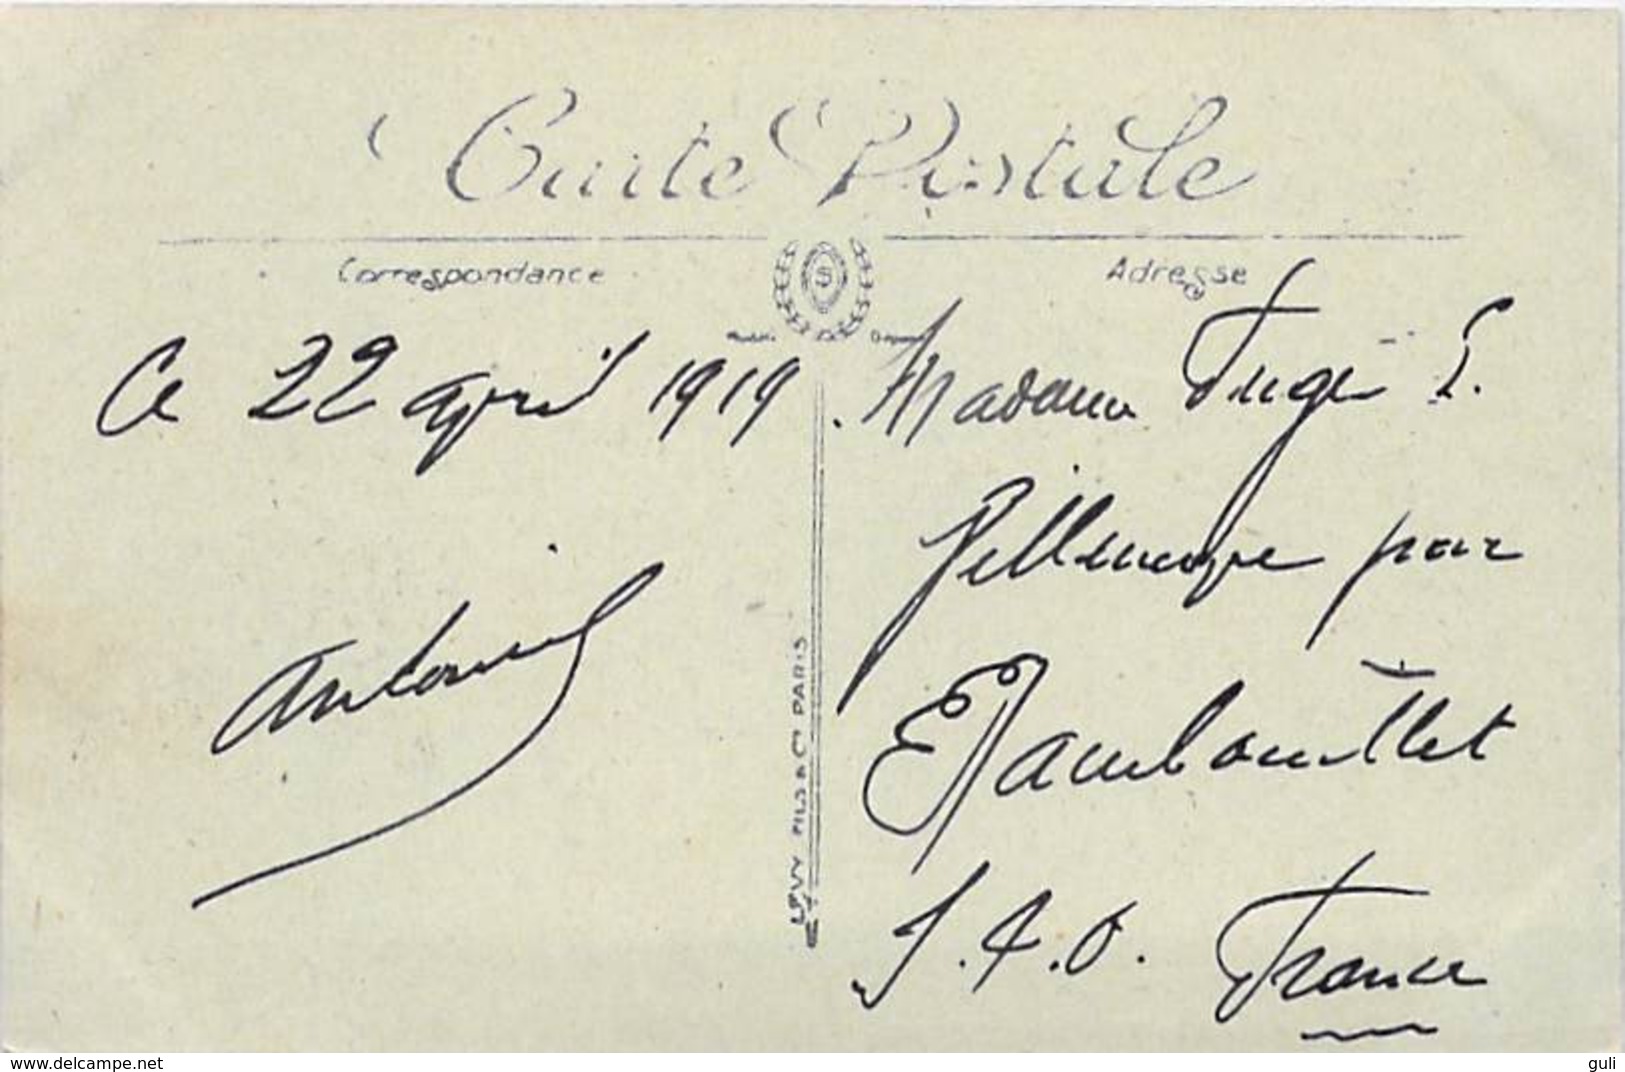 Carte Postale
Correspondance
Adresse
Ce 22 april 1919.
Madame Fugé L.
Villeneuve par
Rambouillet
S. & O. France
LÉVY FILS & Cie PARIS
delcampe.net
guli